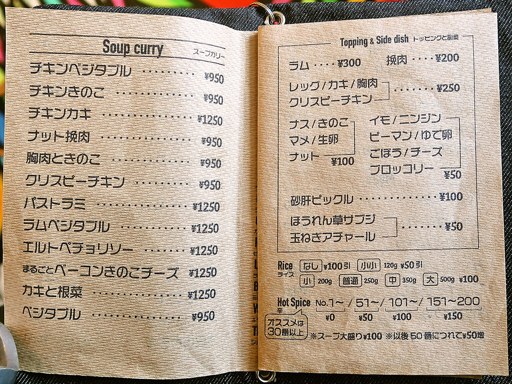 Soup curry スープカリー
チキンベジタブル ‥‥‥‥ ¥950
チキンきのこ ‥‥‥‥‥‥ ¥950
チキンカキ ‥‥‥‥‥‥‥ ¥1250
ナット挽肉 ‥‥‥‥‥‥‥ ¥950
胸肉ときのこ ‥‥‥‥‥‥ ¥950
クリスピーチキン ‥‥‥‥ ¥950
パストラミ ‥‥‥‥‥‥‥ ¥1250
ラムベジタブル ‥‥‥‥‥ ¥1250
エルトベチョリソー ‥‥‥ ¥1250
まるごとベーコンきのこチーズ ¥1250
カキと根菜 ‥‥‥‥‥‥‥ ¥1250
ベジタブル ‥‥‥‥‥‥‥ ¥950
Topping & Side dish トッピングと副菜
ラム ‥‥ ¥300 挽肉 ‥‥‥ ¥200
レッグ/カキ/胸肉
クリスピーチキン ‥‥‥‥ ¥250
ナス/きのこ
マメ/生卵
ナット ¥100
イモ/ニンジン
ピーマン/ゆで卵
ごぼう/チーズ
ブロッコリー ¥50
砂肝ピックル ‥‥‥‥‥‥ ¥100
ほうれん草サブジ
玉ねぎアチャール ‥‥‥‥ ¥50
Rice ライス なし ¥100引 小小 120g ¥50引
小 200g 普通 250g 中 350g 大 500g ¥100
Hot Spice No.1〜/ 51〜/ 101〜/ 151〜200
¥0 ¥50 ¥100 ¥150
オススメは
30番以上 ※スープ大盛り¥100 ※以後50番につれて¥50増